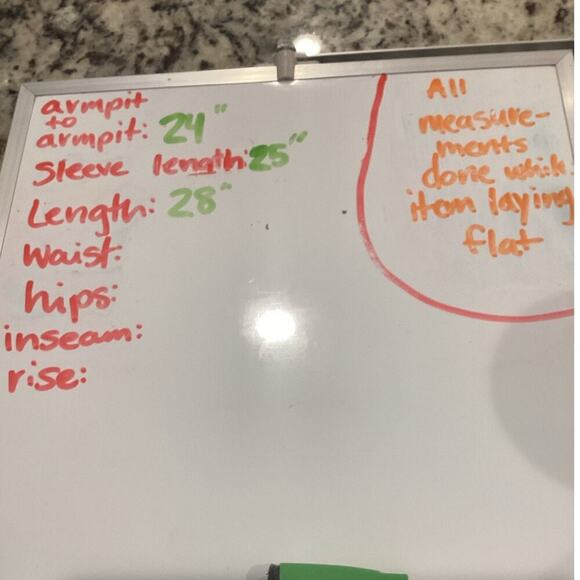 armpit
to
armpit: 24"
Sleeve length: 25"
Length: 28"
Waist:
hips:
inseam:
rise:
All
measure-
ments
done
item laying
flat